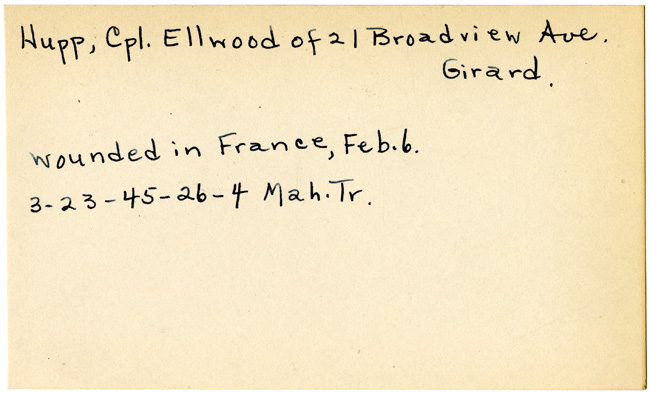 Hupp, Cpl. Ellwood of 21 Broadview Ave.
Girard.
wounded in France, Feb. 6.
3-23-45-26-4 Mah. Tr.